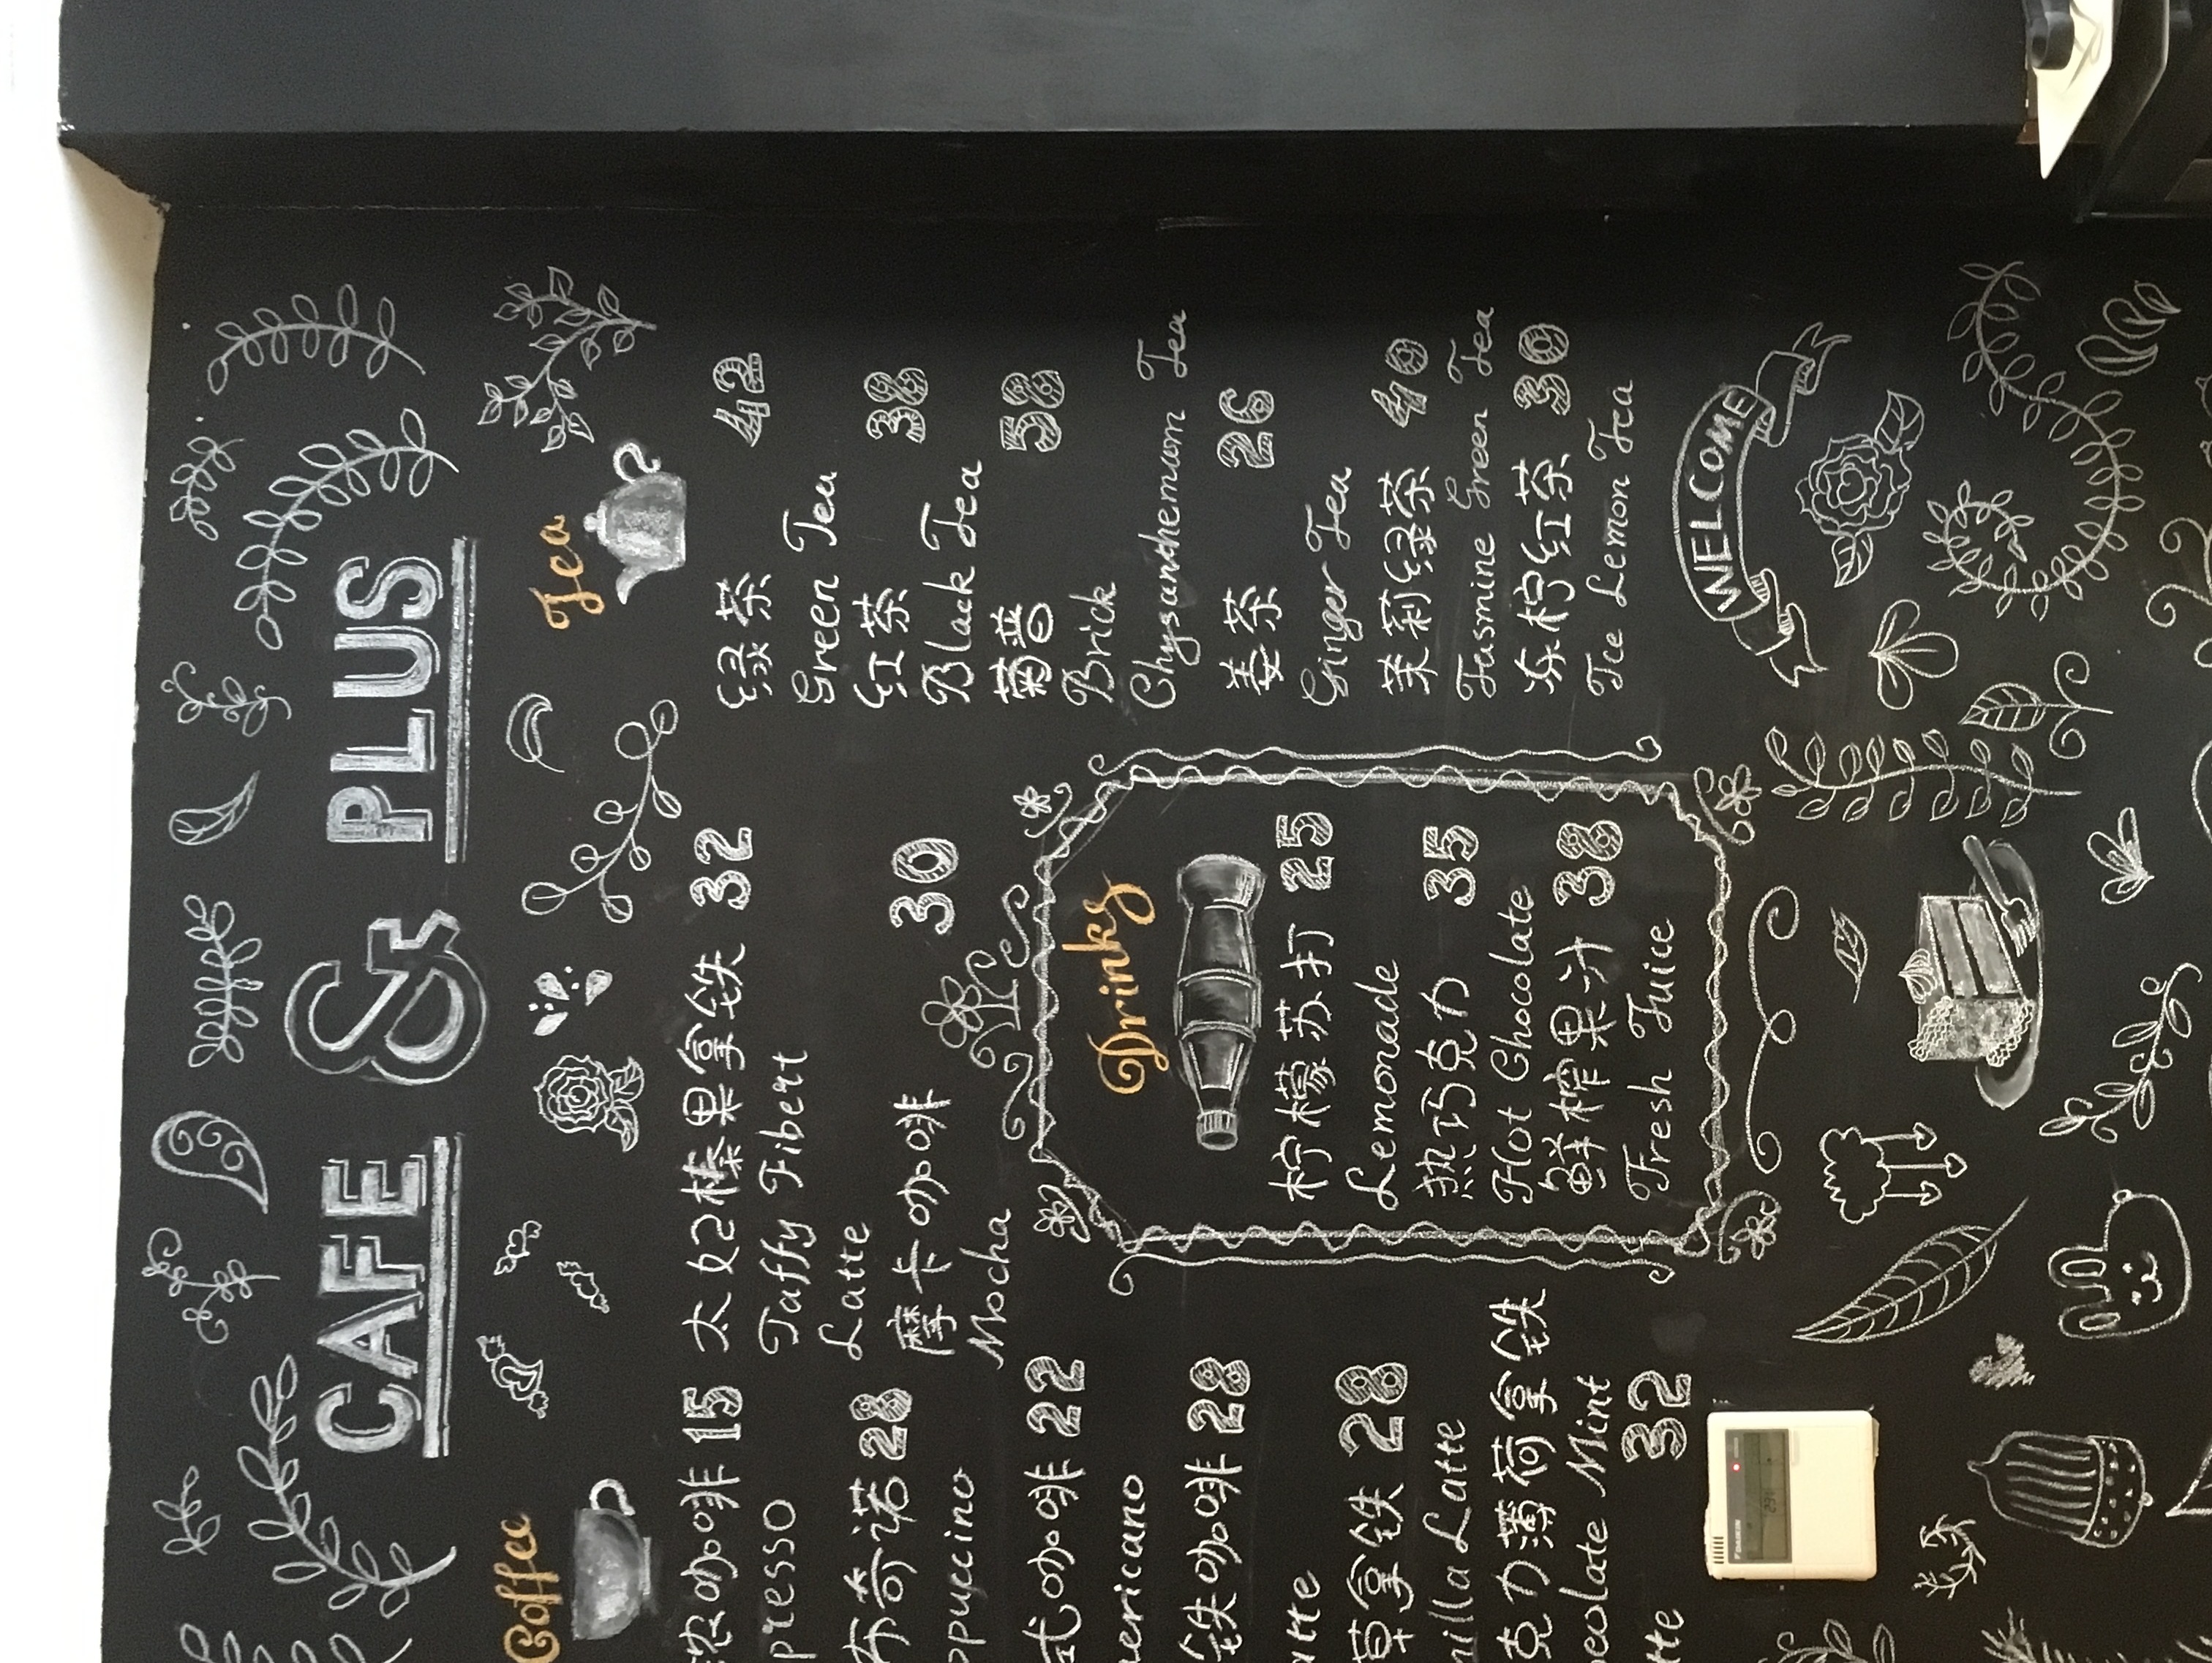 CAFE & PLUS
Coffee
浓咖啡 15
presso
布奇诺 28
ppuccino
式咖啡 22
mericano
铁咖啡 28
atte
草拿铁 28
nilla Latte
克力薄荷拿铁
ocolate Mint
tte 32
太妃榛果拿铁 32
Taffy Fibert
Latte
摩卡咖啡 30
Mocha
Drinks
柠檬苏打 25
Lemonade
热巧克力 35
Hot Chocolate
鲜榨果汁 38
Fresh Juice
Tea
绿茶 42
Green Tea
红茶 38
Black Tea
菊普 58
Brick
Chysanthemum Tea
姜茶 26
Ginger Tea
茉莉绿茶 40
Jasmine Green Tea
冻柠红茶 30
Ice Lemon Tea
WELCOME
DAIKIN